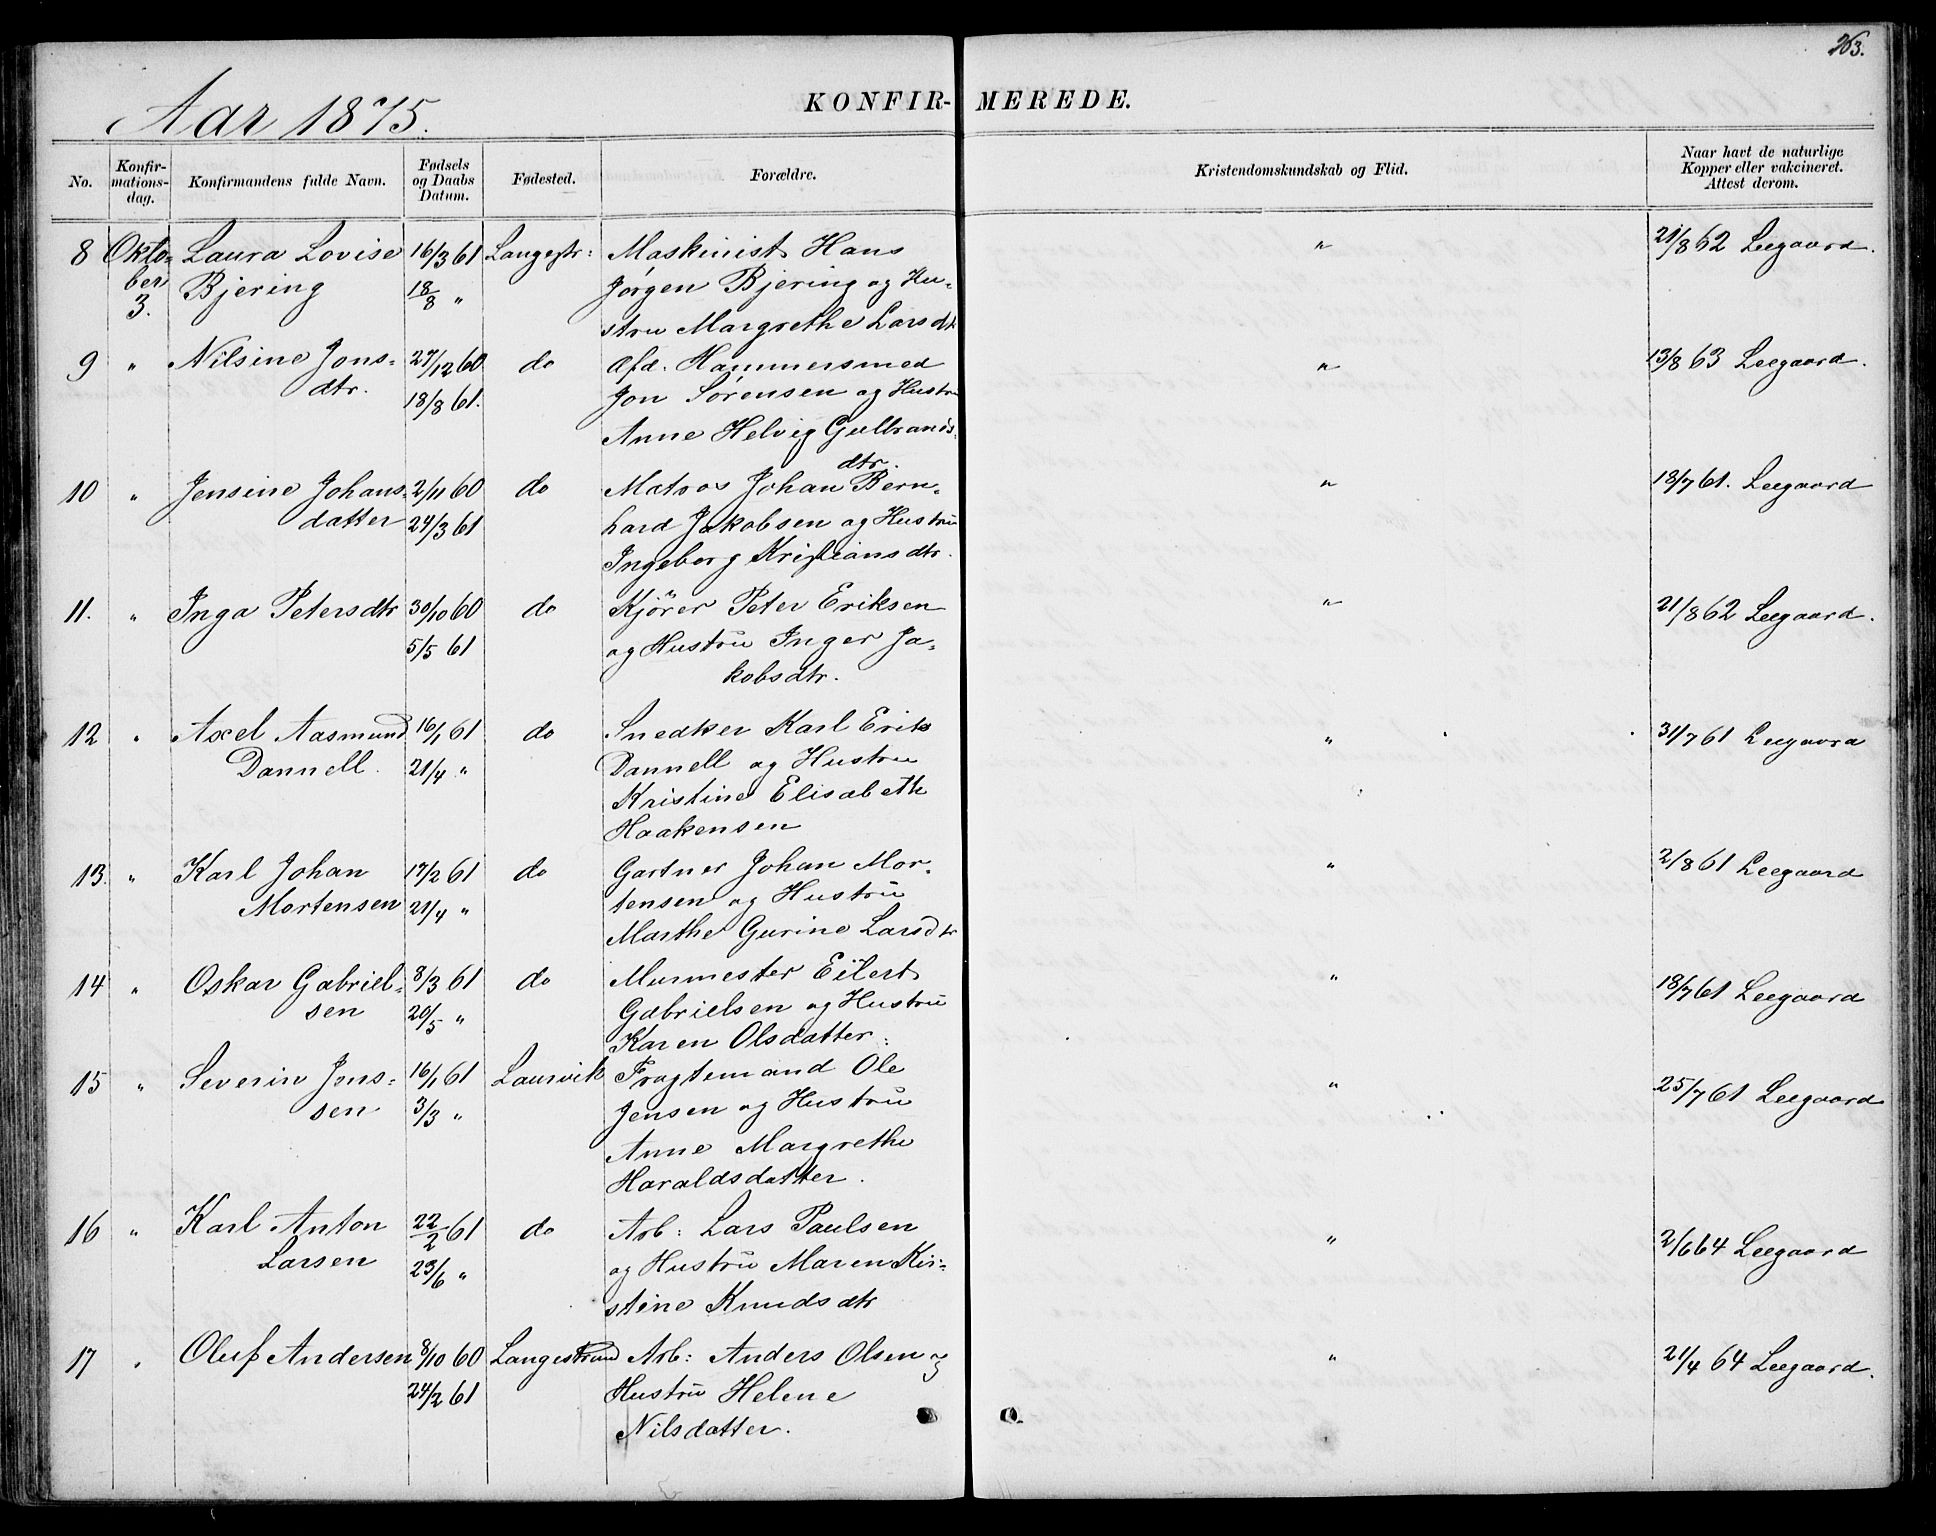 263.
Aar 1875.
KONFIR- MEREDE.
No. Konfir-mations-dag. Konfirmandens fulde Navn. Fødsels og Daabs Datum. Fødested. Forældre. Kristendomskundskab og Flid. Naar havt de naturlige Kopper eller vakcineret. Attest derom.
8 Okto- Laura Lovise 16/3 61 Langestr: Maskinist Hans " 21/8 62 Leegaard.
ber Bjering 18/8 " Jørgen Bjering og Hu-
3. stru Margrethe Larsdtr
9 " Nilsine Jons- 27/12 60 do Afd. Hammersmed " 13/8 63 Leegaard.
dtr. 18/8 61. Jon Sørensen og Hustru
Anne Helvig Gulbrands-
dtr.
10 " Jensine Johans- 2/11 60 do Matros Johan Bern- " 18/7 61. Leegaard
datter 24/3 61 hard Jakobsen og Hustru
Ingeborg Kristiansdtr.
11. " Inga Petersdtr 30/10 60 do Kjører Peter Eriksen " 21/8 62 Leegaard.
5/5 61 og Hustru Inger Ja-
kobsdtr.
12 " Axel Aasmund 16/1 61 do Snedker Karl Erik " 31/7 61 Leegaard
Dannell. 21/4 " Dannell og Hustru
Kristine Elisabeth
Haakensen
13. " Karl Johan 17/2 61 do Gartner Johan Mor- " 2/8 61 Leegaard
Mortensen 21/4 " tensen og Hustru
Marthe Gurine Larsdtr
14 " Oskar Gabriel- 8/3 61 do Murmester Eilert " 18/7 61 Leegaard
sen 20/5 " Gabrielsen og Hustru
Karen Olsdatter.
15 " Severin Jens- 16/1 61 Laurvik Fragtemand Ole " 25/7 61 Leegaard
sen 3/3 " Jensen og Hustru
Anne Margrethe
Haraldsdatter.
16 " Karl Anton 22/2 61 do Arb: Lars Paulsen " 2/6 64 Leegaard
Larsen 23/6 " og Hustru Maren Kir-
stine Knudsdtr
17 " Oluf Andersen 8/10 60 Langestrand Arb: Anders Olsen og " 21/4 64 Leegaard.
24/2 61 Hustru Helene
Nilsdatter.